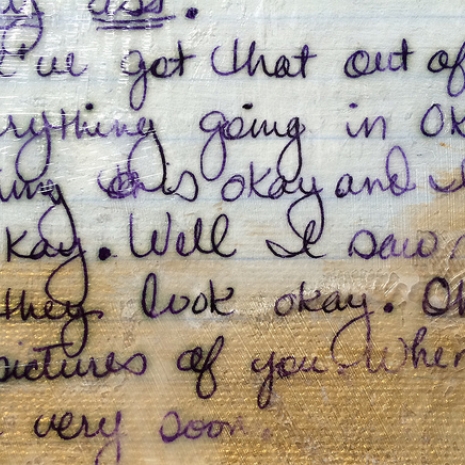 ass.
I've got that out of
everything going in OK
is okay and I
okay. Well I saw
they look okay. Oh
pictures of you. When
very soon.